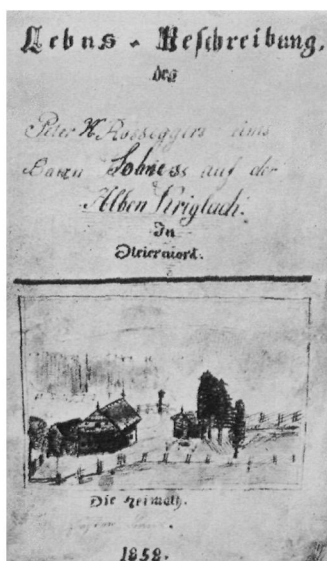 Lebns-Beschreibung.
des
Peter K. Roseggers eins
Bauern Sohness auf der
Alben Kriglach.
In
Steiermork.
Die Heimath.
1858.